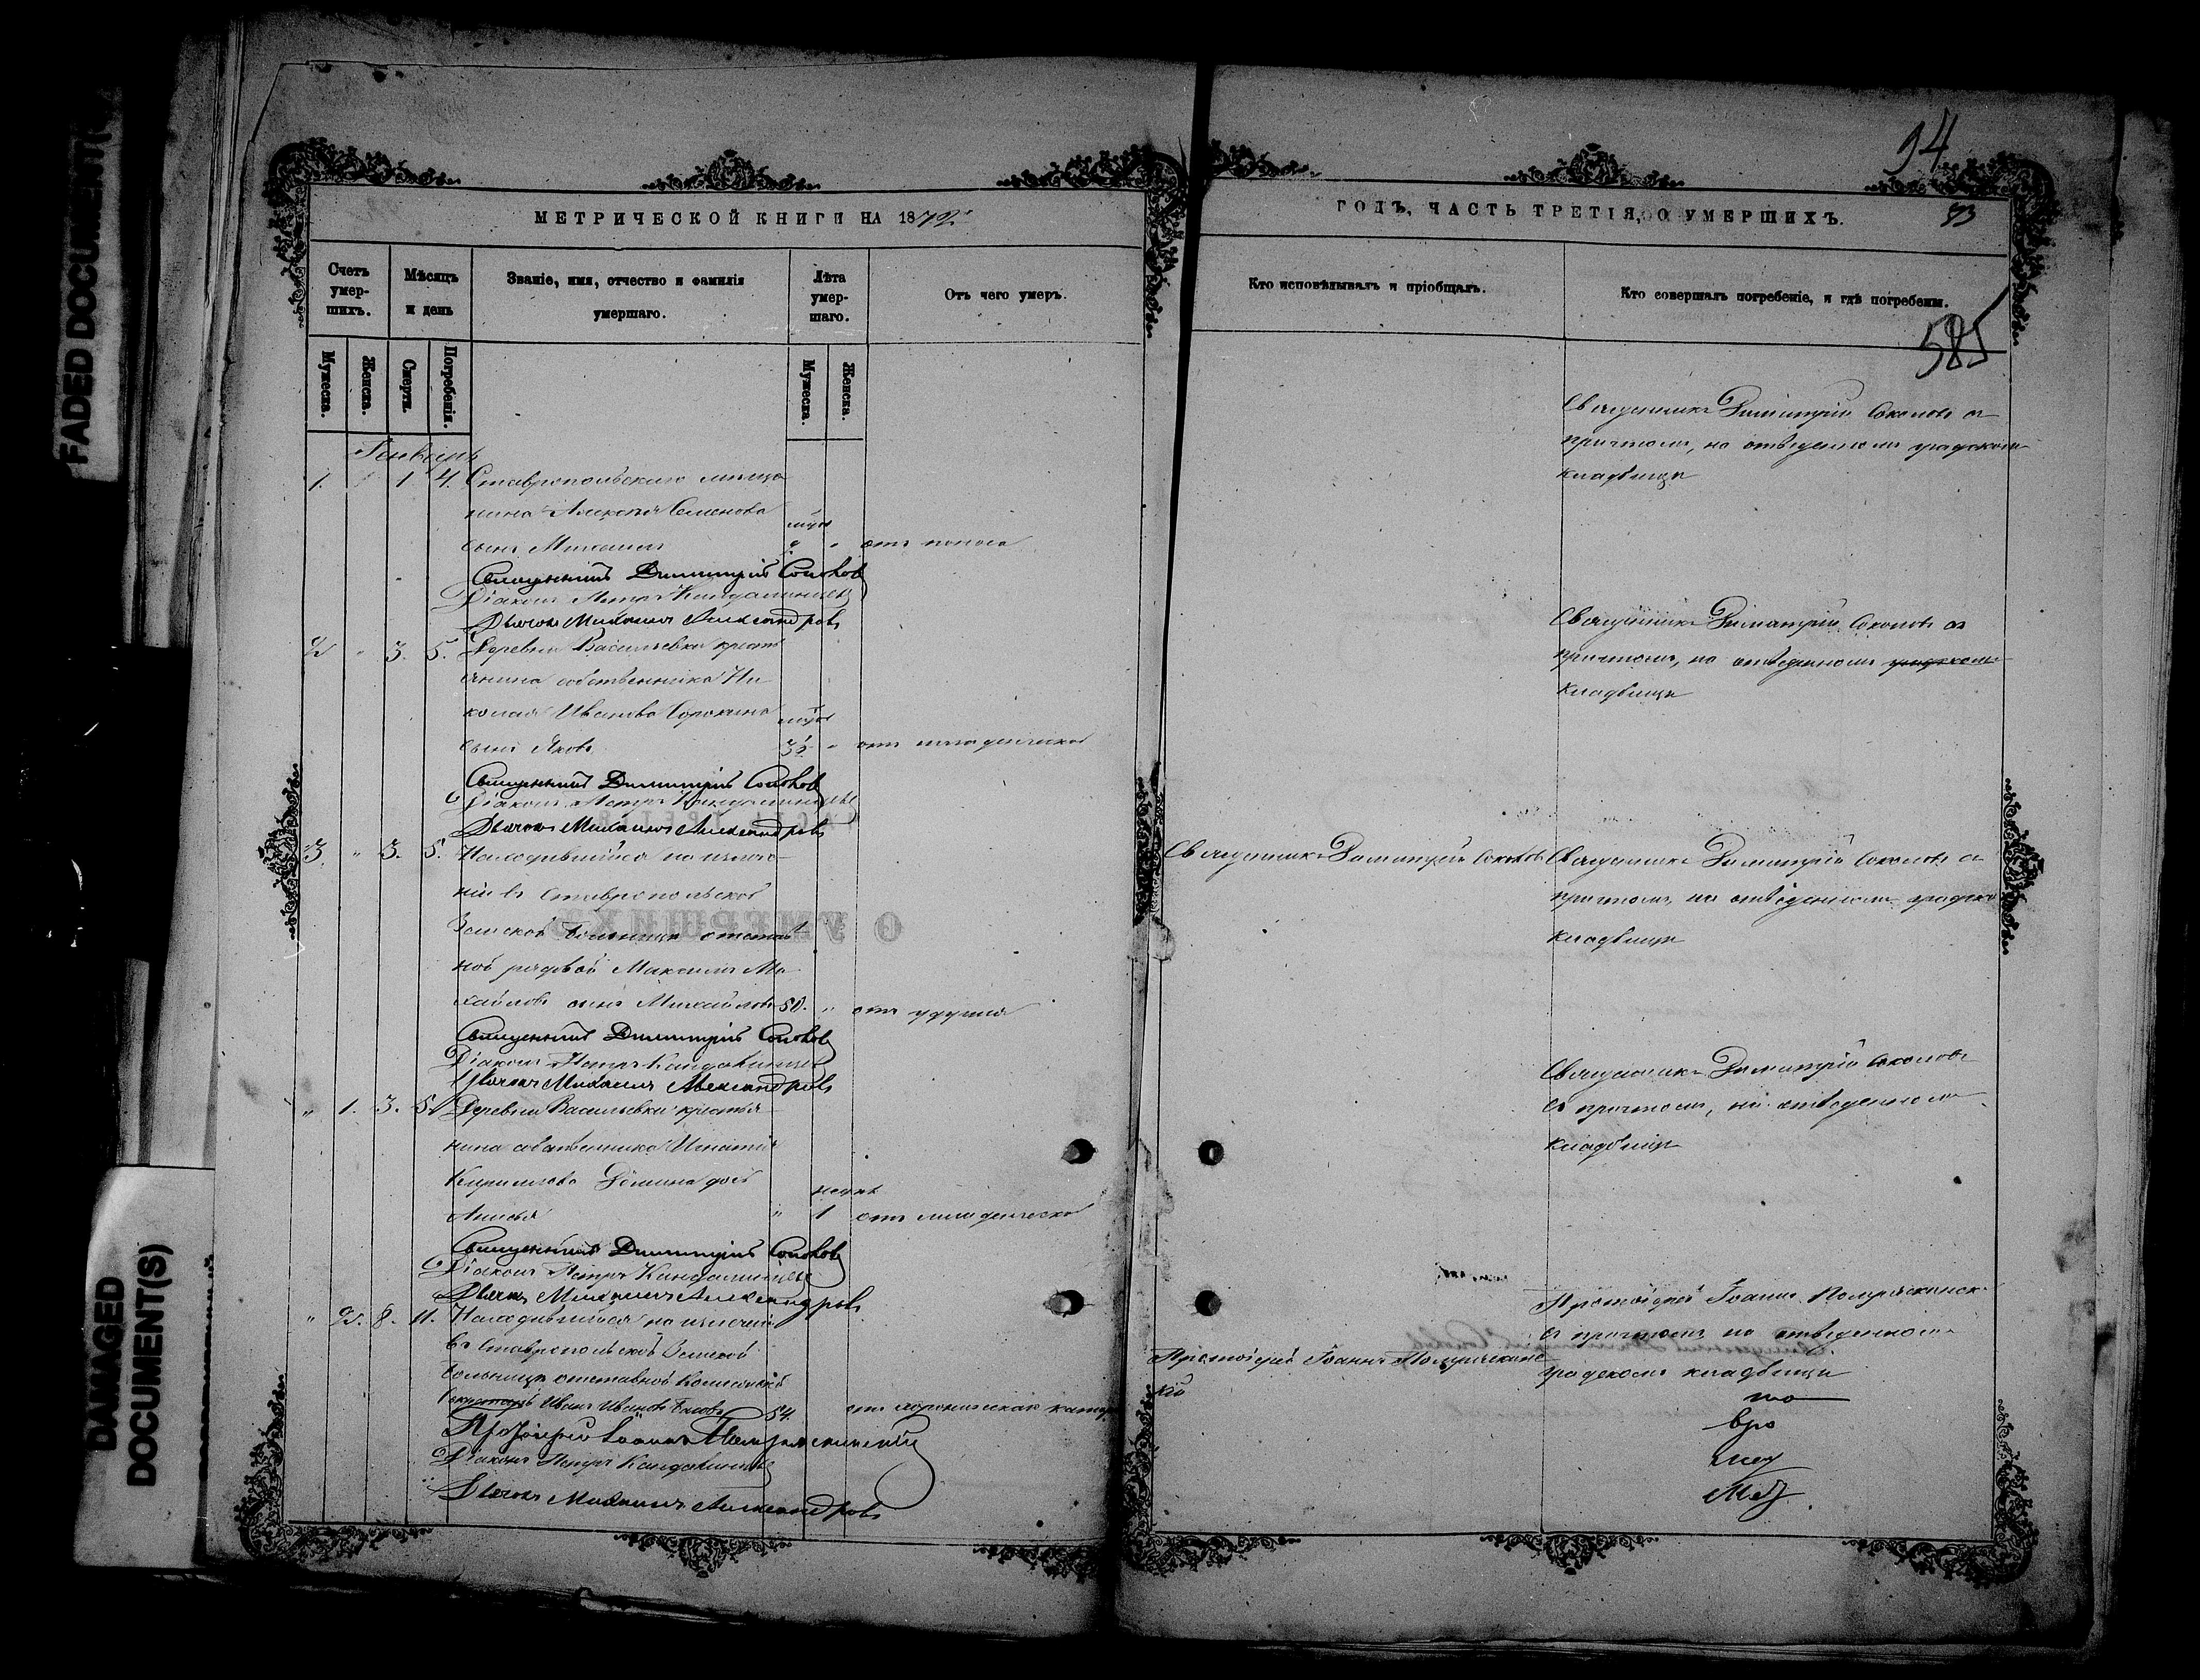 FADED DOCUMENT(
DAMAGED
DOCUMENT(S)
МЕТРИЧЕСКОЙ КНИГИ НА 1872
Счетъ умер-шихъ.
Мѣсяцъ и день
Званіе, имя, отчество и фамилія умершаго.
Лѣта умер-шаго.
Отъ чего умеръ.
Мужеска.
Женска.
Смерти.
Погребенія.
Мужеска.
Женска.
Генварь
1. 1 4. Ставропольскаго мѣща
нина Алексѣя Семенова
сынъ Михаилъ отъ поноса
Священникъ Димитрій Соколовъ
Діаконъ Петръ
Дьячокъ Михаилъ Александровъ
2 " 3. 5. Деревни Васильевки кресть
янина собственника Ни
колая Иванова Сорокина
сынъ Яковъ 3½ " отъ младенческой
Священникъ Димитрій Соколовъ
Діаконъ Петръ
Дьячокъ Михаилъ Александровъ
3. " 3. 5. Находившійся на излече
ніи въ Ставропольской
Земской больницѣ отстав
ной рядовой Михаилъ Ми
хайловъ сынъ Михайловъ 50. " отъ удушья
Священникъ Димитрій Соколовъ
Діаконъ Петръ
Дьячокъ Михаилъ Александровъ
" 1. 3. 5. Деревни Васильевки крестья
нина собственника Игнатія
Кириллова Демина дочь недѣл
Анисья " 1 отъ младенческой
Священникъ Димитрій Соколовъ
Діаконъ Петръ
Дьячокъ Михаилъ Александровъ
" 2. 8. 11. Находившійся на излечен
въ Ставропольской Земской
больницѣ отставной
Иванъ Ивановъ 54.
Протоіерей Іоаннъ
Діаконъ Петръ
Дьячокъ Михаилъ Александровъ
94
ГОДЪ, ЧАСТЬ ТРЕТІЯ, О УМЕРШИХЪ.
93
Кто исповѣдывалъ и пріобщалъ.
Кто совершалъ погребеніе, и гдѣ погребены.
585
Священникъ Димитрій Соколовъ съ
причтомъ, на отведенномъ градском
кладбищѣ
Священникъ Димитрій Соколовъ съ
причтомъ, на отведенномъ
кладбищѣ
Священникъ Димитрій Соколовъ
Священникъ Димитрій Соколовъ съ
причтомъ, на отведенномъ градско
кладбищѣ
Священникъ Димитрій Соколовъ
съ причтомъ, на отведенномъ
кладбищѣ
Протоіерей Іоаннъ
Протоіерей Іоаннъ
съ причтомъ на отведенномъ
градскомъ кладбищѣ